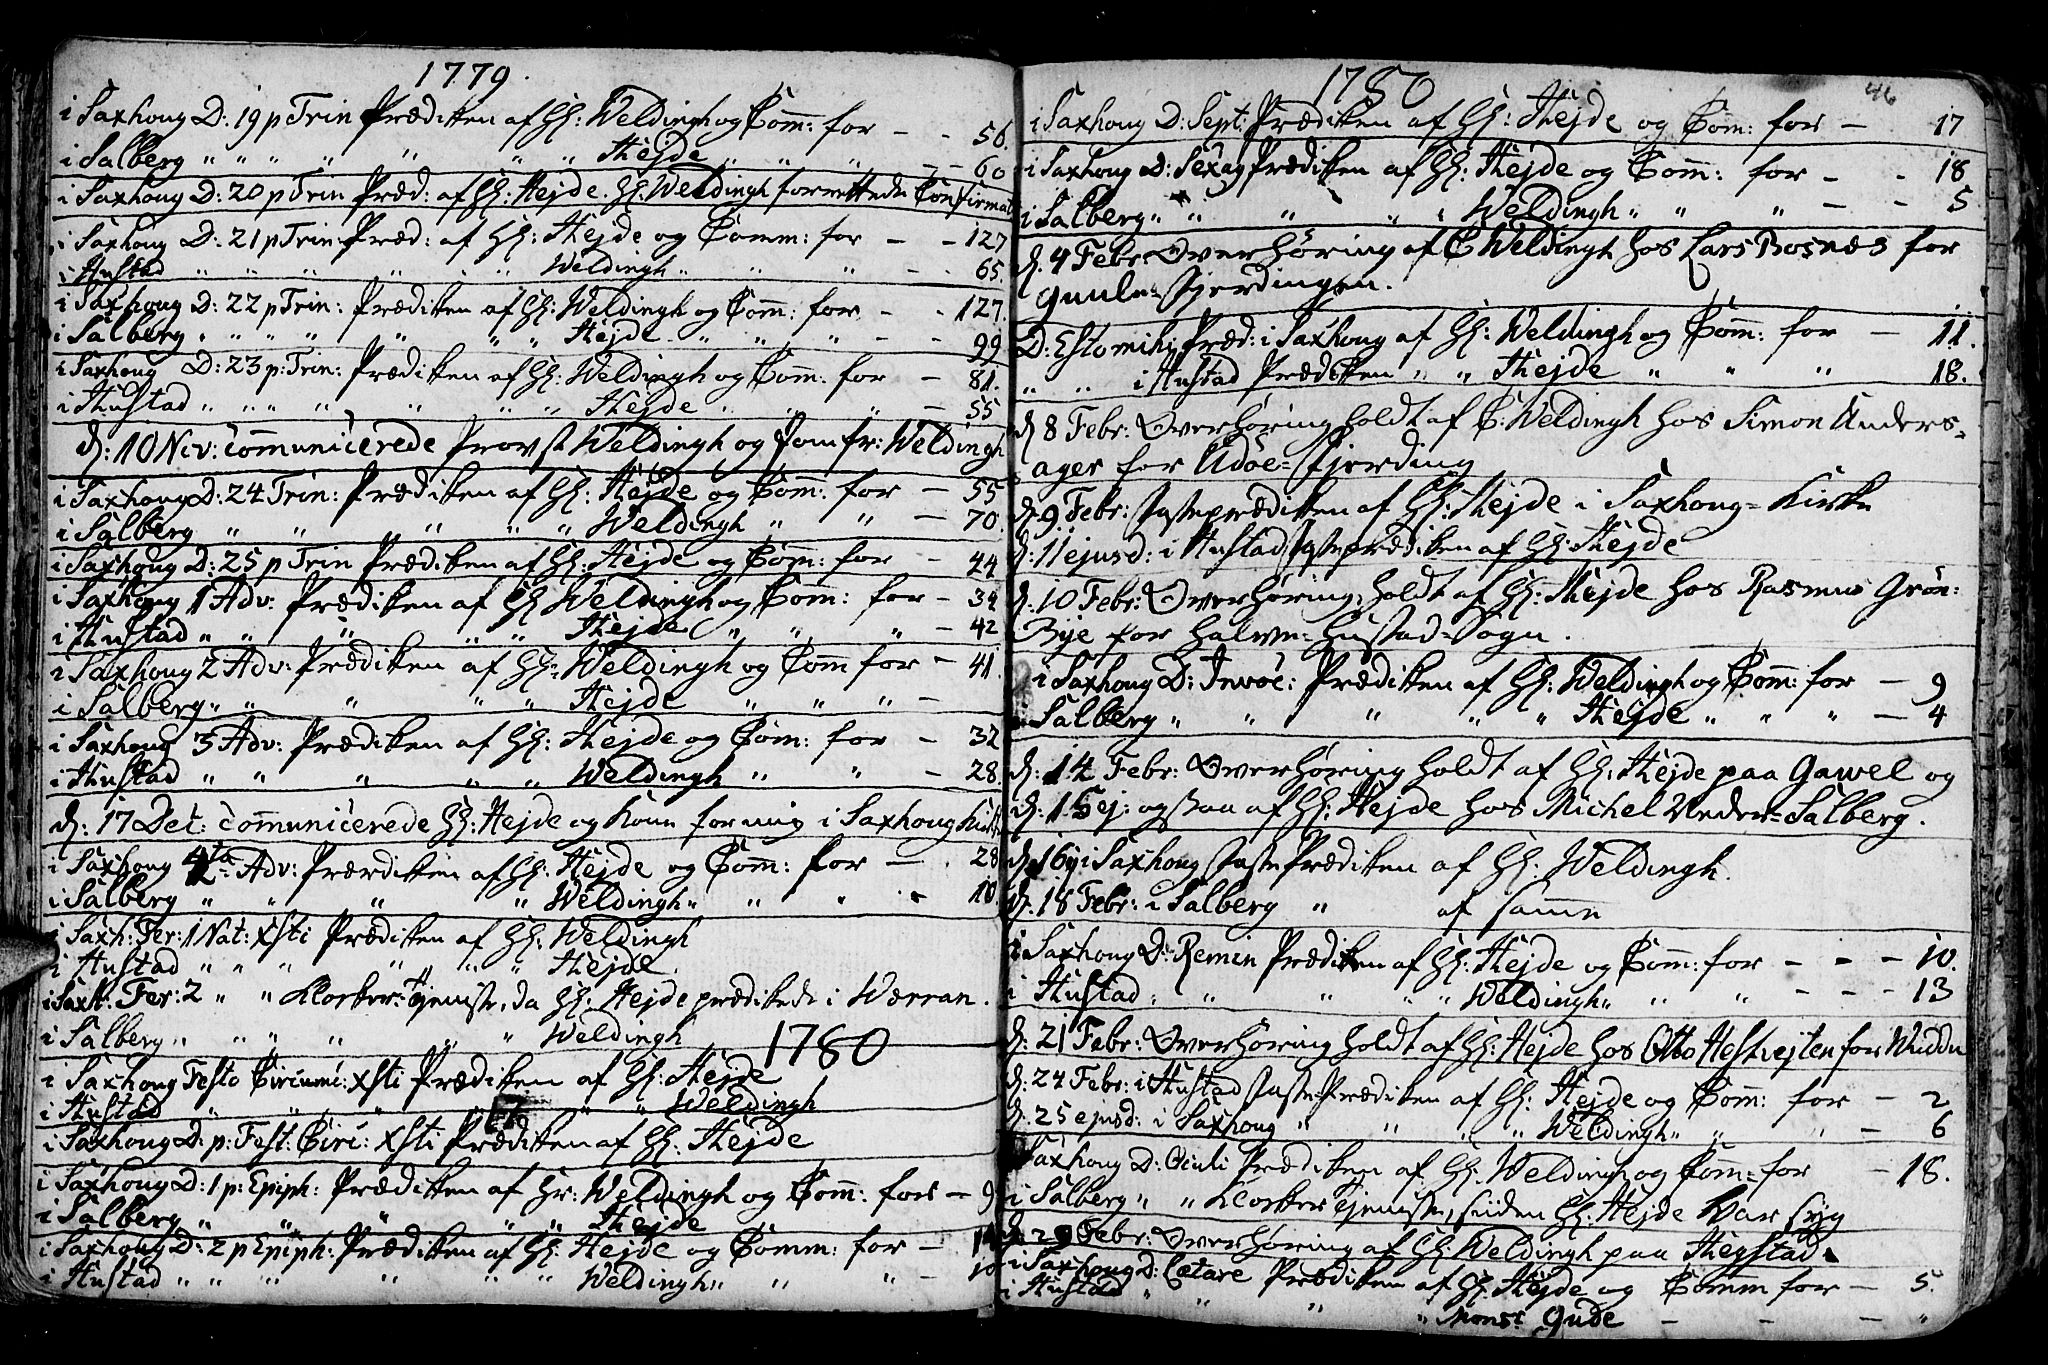 1779.
i Saxhoug D: 19 p Trin Prædiken af Hr: Weldingh og Com̄: for - - 56.
i Salberg " " " " " " " Hejde " " " - - 60
i Saxhoug D: 20 p Trin Præd: af Hr: Hejde. Hr: Weldingh forrettede Confirmat
i Saxhoug D: 21 p Trin: Præd: af Hr: Hejde og Comm: for - - 127
i Hustad " " " " " " " Weldingh " " " - - 65.
i Saxhoug D: 22 p Trin: Prædiken af Hr: Weldingh og Com̄: for - - 127.
i Salberg " " " " " " " Hejde " " " - - 99
i Saxhoug D: 23 p: Trin: Prædiken af Hr: Weldingh og Com̄: for - 81.
i Hustad " " " " " " " Hejde " " " - 55
d: 10 Nov: com̄unicerede Provst Weldingh og Jomfr: Weldingh
i Saxhoug D: 24 Trin: Prædiken af Hr: Hejde og Com̄: for - 55
i Salberg " " " " " Weldingh " " - 70.
i Saxhoug D: 25 p Trin Prædiken af Hr: Hejde og Com̄: for - 44
i Saxhoug 1 Adv: Prædiken af Hr Weldingh og Com̄: for - 34
i Hustad " " " " " Hejde " " " - 42
i Saxhoug 2 Adv: Prædiken af Hr: Weldingh og Com̄ for - 41.
i Salberg " " " " " Hejde " " " -
i Saxhoug 3 Adv: Prædiken af Hr: Hejde og Com̄: for - 32
i Hustad " " " " " Weldingh " " - 28.
d: 17 Dec: com̄unicerede Hr: Hejde og Kone for mig i Saxhoug Kirke
i Saxhoug 4ta Adv: Prærdiken af Hr: Hejde og Com̄: for - . 28
i Salberg " " " " Weldingh " " " " 10.
i Saxh: Fer: 1 Nat: Xsti Prædiken af Hr: Weldingh
i Hustad " " " " " " Hejde.
i Saxh: Fer: 2 " " Klocker-Tjeniste, da Hr: Hejde prædikede i Werran.
i Salberg " " " " " " Weldingh
1780
i Saxhoug Festo Circumc: Xsti Prædiken af Hr: Hejde
i Hustad " " " " " Weldingh
i Saxhoug D: p: Fest: Circ: Xsti Prædiken af Hr: Hejde
i Saxhoug D: 1 p: Epiph: Prædiken af Hr: Weldingh og Com̄: for - 9
i Salberg " " " " " Hejde
i Saxhoug D: 2 p Epiph: Prædiken af Hr: Hejde og Comm: for - 14
i Hustad " " " " " " Weldingh " " " - 10
1780
46
i Saxhoug D: Sept: Prædiken af Hr: Hejde og Com̄: for - 17
i Saxhoug D: Sexag Prædiken af Hr: Hejde og Com̄: for - - 18
i Salberg " " " " " Weldingh " " " - - 5
d. 4 Febr: Overhøring af C Weldingh hos Lars Rosnæs for
Guule-Fjerdingen.
D: Estomihi Præd: i Saxhoug af Hr: Weldingh og Com̄: for - 11.
" " i Hustad Prædiken " " Hejde " " " 18.
d 8 Febr: Overhøring holdt af C: Weldingh hos Simon Anders-
ager for Udøe-Fjerding
d. 9. Febr: Fasteprædiken af Hr: Hejde i Saxhoug-Kirke
d: 11 ejusd: i Hustad Fasteprædiken af Hr: Hejde
d: 10 Febr: Overhøring, holdt af Hr: Hejde hos Rasmus Grøn-
Bye for halve-Hustad-Sogn.
i Saxhoug D: Invoc: Prædiken af Hr: Weldingh og Com̄: for - 9
i Salberg " " " " " Hejde " " " - 4
d: 14 Febr: Overhøring holdt af Hr: Hejde paa Gawel og
d: 15 ej: ogsaa af Hr: Hejde hos Michel Neder-Salberg.
d: 16 i Saxhoug Faste Prædiken af Hr: Weldingh.
d. 18 Febr: i Salberg " af sam̄e
i Saxhoug D: Remin Prædiken af Hr: Hejde og Com̄: for - - - 10.
i Hustad " " " " " Weldingh " " " - - - 13
d: 21 Febr: Overhøring holdt af Hr: Hejde hos Otto Hestvejten for Wuddu
d: 24 Febr: i Hustad Faste-Prædiken af Hr: Hejde og Com̄: for - 2
d. 25 ejusd: i Saxhoug " " " " Weldingh " " " - 6
i Saxhoug D: Oculi Prædiken af Hr: Weldingh og Com̄: for - 18.
i Salberg " " Klocker Tjeniste, siden Hr: Hejde var syg
d. 29 Febr: Overhøring af Hr: Weldingh paa Hegstad.
i Saxhoug D: Lætare Prædiken af Hr: Hejde og Comm for - 5.
i Hustad " " " " Monsr Gude - - - "